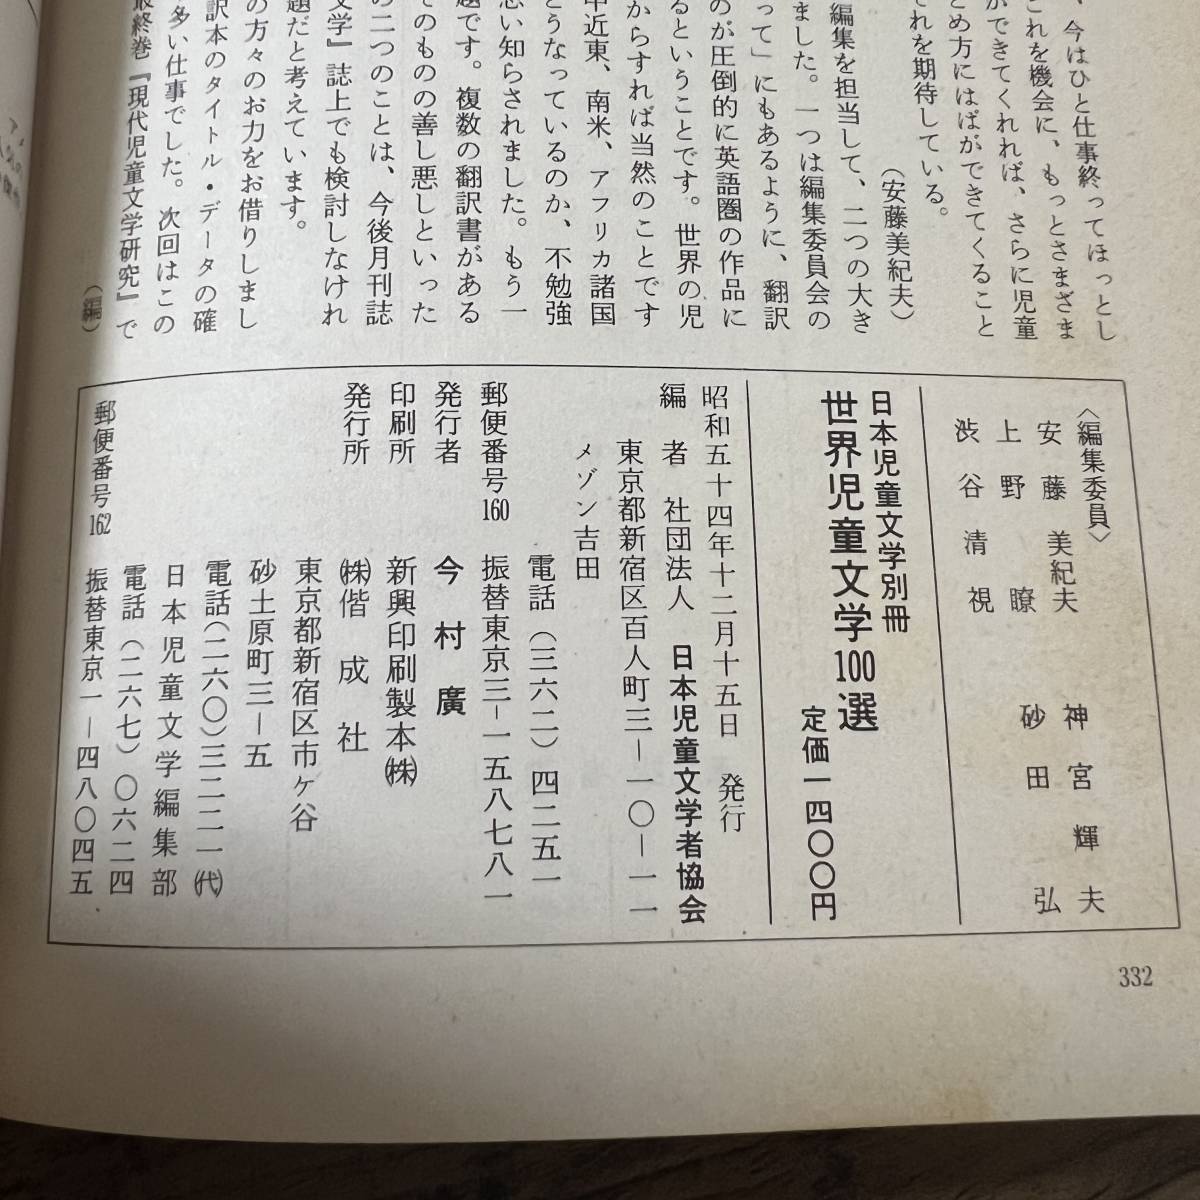 、今はひと仕事終ってほっとし
これを機会に、もっとさまざま
ができてくれれば、さらに児童
とめ方にはばができてくること
それを期待している。
(安藤美紀夫)
編集を担当して、二つの大き
ました。一つは編集委員会の
って」にもあるように、翻訳
のが圧倒的に英語圏の作品に
るということです。世界の児
からすれば当然のことです
中近東、南米、アフリカ諸国
どうなっているのか、不勉強
思い知らされました。もう一
題です。複数の翻訳書がある
てのものの善し悪しといった
の二つのことは、今後月刊誌
文学』誌上でも検討しなけれ
題だと考えています。
の方々のお力をお借りしまし
訳本のタイトル・データの確
多い仕事でした。次回はこの
最終巻『現代児童文学研究』で
(編)
〈編集委員〉
安藤美紀夫 神宮輝夫
上野瞭 砂田弘
渋谷清視
日本児童文学別冊
世界児童文学100選
定価一四〇〇円
昭和五十四年十二月十五日 発行
編者 社団法人 日本児童文学者協会
東京都新宿区百人町三―一〇―一一
メゾン吉田
電話(三六二)四二五一
郵便番号160 振替東京三―一五八七八一
発行者 今村廣
印刷所 新興印刷製本㈱
発行所 ㈱偕成社
東京都新宿区市ケ谷
砂土原町三―五
電話(二六〇)三二二一㈹
日本児童文学編集部
電話(二六七)〇六二四
郵便番号162 振替東京一―四八〇四五
332